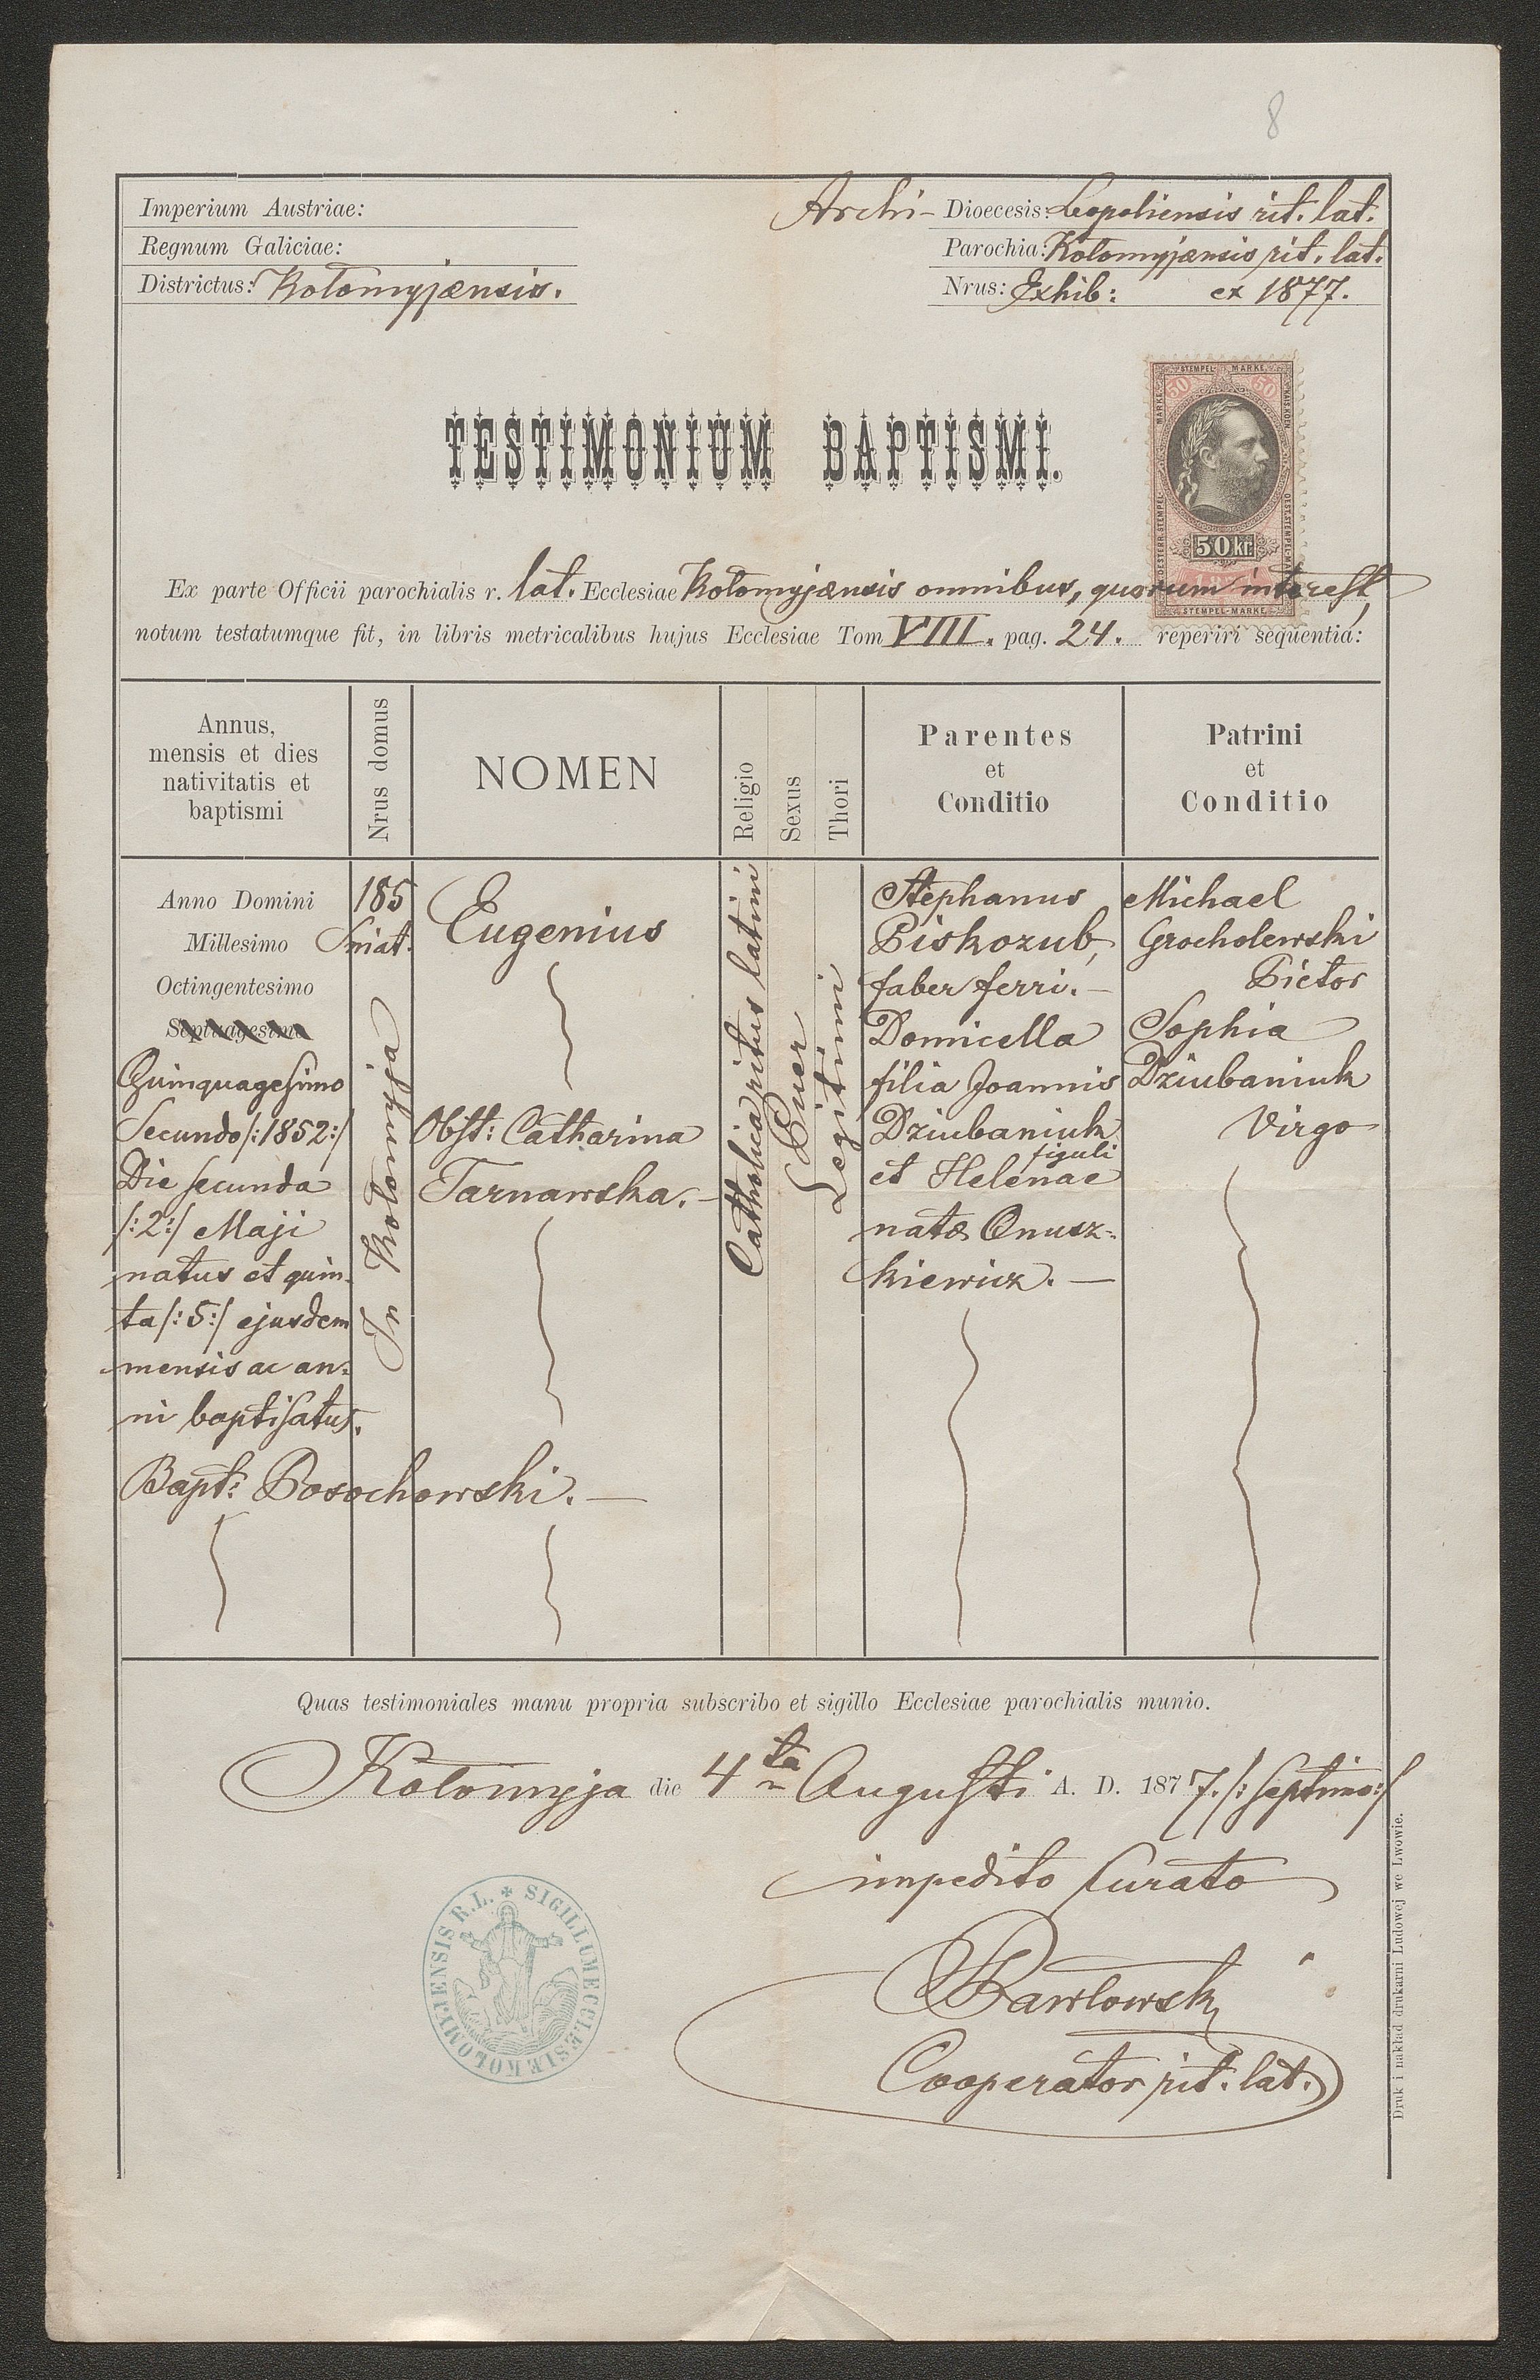 8
Imperium Austriae:
Regnum Galiciae:
Districtus: Kołomyjænsis.
Archi- Dioecesis: Leopoliensis rit. lat.
Parochia: Kołomyjænsis rit. lat.
Nrus: Exhib: ex 1877.
TESTIMONIUM BAPTISMI.
STEMPEL-MARKE
50 50
50 kr.
STEMPEL-MARKE
Ex parte Officii parochialis r. lat. Ecclesiae Kołomyjænsis omnibus, quorum interest,
notum testatumque fit, in libris metricalibus hujus Ecclesiae Tom VIII. pag. 24. reperiri sequentia:
Annus,
mensis et dies
nativitatis et
baptismi
Nrus domus
NOMEN
Religio
Sexus
Thori
Parentes
et
Conditio
Patrini
et
Conditio
Anno Domini
Millesimo
Octingentesimo
Septuagesimo
Quinquagesimo
Secundo /:1852:/
Die secunda
/:2:/ Maji
natus et quin-
ta /:5:/ ejusdem
mensis ac an-
ni baptisatus.
Bapt: Posochowski.
185
Sniat.
In Kołomyja
Eugenius
Obst: Catharina
Tarnawska.
Catholica ritus latini
Puer
Legitimi
Stephanus
Piskozub,
faber ferri.
Domicella
filia Joannis
Dziubaniuk
figuli
et Helenae
natæ Onusz-
kiewicz.
Michael
Grocholewski
Pictor
Sophia
Dziubaniuk
Virgo
Quas testimoniales manu propria subscribo et sigillo Ecclesiae parochialis munio.
Kołomyja die 4ta Augusti A. D. 1877. /:septimo:/
impedito Curato
Pawłowski
Cooperator rit. lat.
SIGILLUM ECCLESIÆ KOLOMYJENSIS R.L.
Druk i nakład drukarni Ludowej we Lwowie.